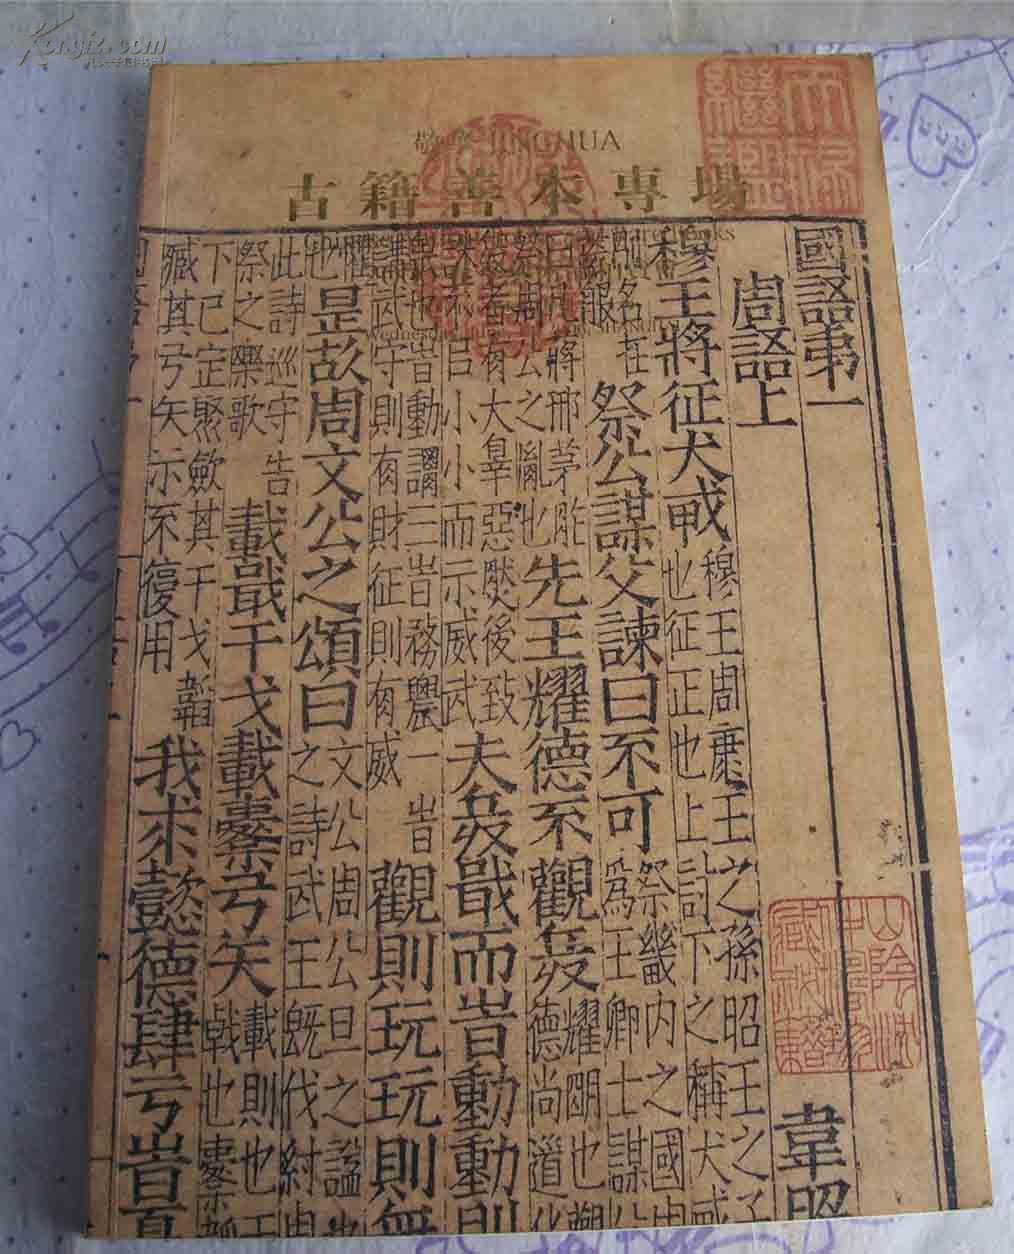 Kongfz.com
敬華 JINGHUA
古籍善本專場
國語弟一
周語上
韋昭
穆王將征犬戎
穆王周康王之孫昭王之子
也征正也上討下之稱犬戎
名在
荒服
祭公謀父諫曰不可
祭畿内之國周
爲王卿士謀父
蔣邢茅胙
祭周公之胤也
先王耀德不觀兵
耀明也觀
德尚道化
者有大辠惡然後致
誅不㠯小小而示威武
夫兵戢而旹動動則
也旹動謂三旹務農一旹
講武守則有財征則有威
觀則玩玩則無
懼
也
是故周文公之頌曰
文公周公旦之謚也
之詩武王旣伐紂周
此詩巡守告
祭之樂歌
載戢干戈載櫜弓矢
載則也干
戢也櫜韜
下已定聚斂其干戈韜
臧其弓矢示不復用
我求懿德肆于旹夏